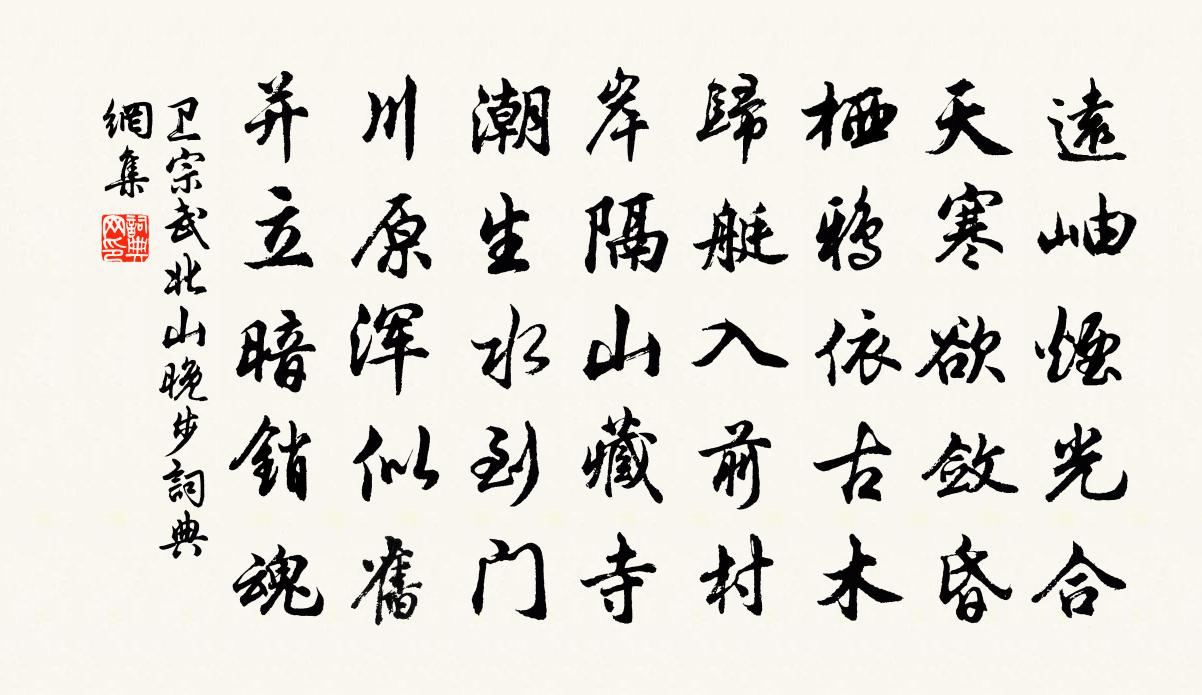 遠岫煙光合
天寒欲斂昏
栖鴉依古木
歸艇入前村
岸隔山藏寺
潮生水到门
川原浑似舊
并立暗銷魂
卫宗武北山晚步詞典
網集
詞典
网印